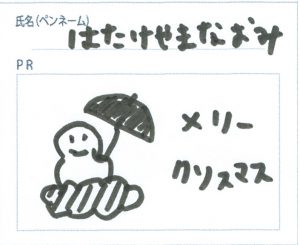 氏名(ペンネーム)
はたけやまなおみ
PR
メリー
クリスマス